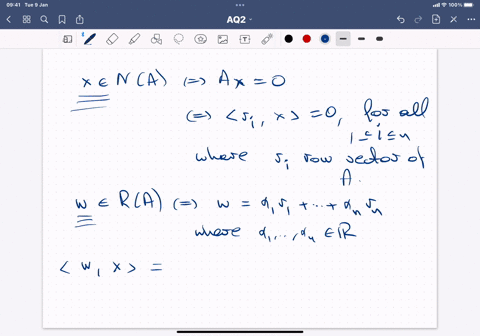 09:41 Tue 9 Jan
100%
AQ2
x ∈ N(A) ⟺ Ax = 0
⟺ <v_i, x> = 0, for all
1 ≤ i ≤ n
where v_i row vector of
A.
w ∈ R(A) ⟺ w = α_1 v_1 + ... + α_n v_n
where α_1, ..., α_n ∈ ℝ
< w, x > =